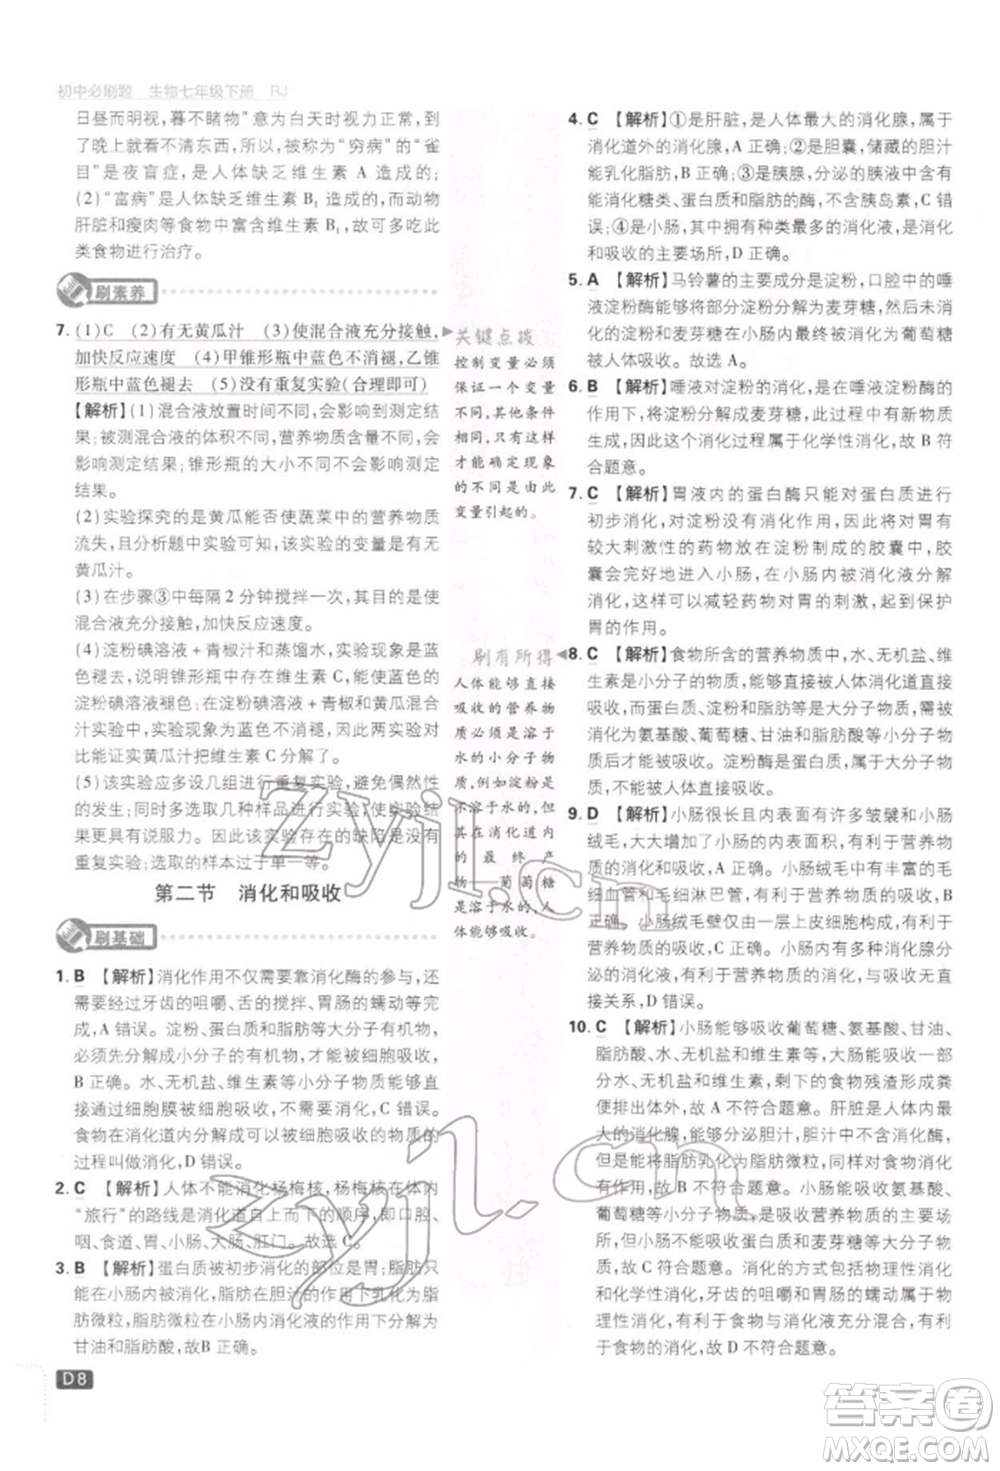 初中必刷题 生物七年级下册 RJ
日昼而明视，暮不睹物”意为白天时视力正常，到了
晚上就看不清东西。所以，被称为“穷病”的“雀
目”是夜盲症，是人体缺乏维生素 A 造成的；
(2)“富病”是人体缺乏维生素 B₁ 造成的，而动物
肝脏和瘦肉等食物中富含维生素 B₁，可多吃此
类食物进行治疗。
刷素养
7. (1)C (2)有无黄瓜汁 (3)使混合液充分接触，
加快反应速度 (4)甲锥形瓶中蓝色不消褪，乙锥
形瓶中蓝色褪去 (5)没有重复实验(合理即可)
【解析】(1)混合液放置时间不同，会影响实验结
果；被测混合液的体积不同，营养物质的量不同，
会影响结果；锥形瓶的大小不同不会影响实验
结果。
(2)实验探究的是黄瓜能否使蔬菜中的营养物质
流失，且分析题中实验可知，该实验的变量是有无
黄瓜汁。
(3)在步骤③中每隔 2 分钟搅拌一次，其目的是使
混合液充分接触，加快反应速度。
(4)淀粉碘溶液＋青椒汁和蒸馏水，实验现象是蓝
色褪去，说明锥形瓶中有维生素 C，能够使蓝色的
淀粉碘溶液褪色；在淀粉碘溶液＋青椒和黄瓜汁
混合液中，实验现象为蓝色不消褪，这两组实验对
比能证实黄瓜汁把维生素 C 分解了。
(5)该实验应多设几组进行重复实验，避免偶然性
的发生；多选取几种样品进行实验，使实验的结果
更具有说服力。因此该实验存在的缺陷是没有
重复实验；选取的样本过于单一等。
第二节 消化和吸收
刷基础
1. B 【解析】消化作用不仅需要靠消化酶的参与，还
需要经过牙齿的咀嚼、舌的搅拌、胃肠的蠕动等来完
成，A 错误。淀粉、蛋白质和脂肪等大分子有机物，
必须先分解成小分子的有机物才能被细胞吸收和
利用，B 正确。水、无机盐、维生素等小分子物质能
通过细胞膜被细胞直接吸收，不需要分解，C 错误。
食物在消化道内分解成可以被细胞吸收的物质的
过程叫做消化，D 错误。
2. C 【解析】人体不能消化杨梅核，杨梅核在体内
“旅行”的路线是消化道自上而下的顺序，即口腔、
咽、食道、胃、小肠、大肠、肛门。故选 C。
3. B 【解析】蛋白质被初步消化的部位是胃；脂肪的
消化过程是脂肪在小肠内胆汁的作用下乳化为脂肪
微粒，脂肪微粒在小肠内消化液的作用下分解为
甘油和脂肪酸，故 B 正确。
D8
关键点拨
控制变量必须
保证一个变量
不同，其他条件
相同，只有这样
才能确定现象
的不同是由此
变量引起的。
刷有所得
人体能够直接
吸收的营养物
质必须是溶于
水的小分子物
质，例如淀粉是
不溶于水的，其
在消化道内
的最终产
物——葡萄糖
是溶于水的，人
体能够吸收。
4. C 【解析】①是肝脏，是人体最大的消化腺，属于
消化道外的消化腺，A 正确；②是胆囊，储藏的胆汁
能乳化脂肪，B 正确；③是胰腺，分泌的胰液含有
能消化糖类、蛋白质和脂肪的酶，含胰岛素，C 错
误；④是小肠，其中拥有种类最多的消化液，是消化
和吸收的主要场所，D 正确。
5. A 【解析】马铃薯的主要成分是淀粉，口腔中的唾
液淀粉酶能够将部分淀粉分解为麦芽糖。然后未
消化的淀粉和麦芽糖在小肠内最终被消化为葡萄糖
被人体吸收。故选 A。
6. B 【解析】唾液对淀粉的消化，是在唾液淀粉酶的
作用下，将淀粉分解成麦芽糖，此过程中有新物质
生成，因此这个消化过程属于化学性消化，故 B 符
合题意。
7. C 【解析】胃液内的蛋白酶只能对蛋白质进行
初步消化，对淀粉没有消化作用，因此将对胃有
较大刺激性的药物放在淀粉制成的胶囊中，胶
囊会经胃进入小肠，在小肠内被消化液分解
消化，从而可以减轻药物对胃的刺激，起到保护
胃的作用。
8. C 【解析】食物所含的营养物质中，水、无机盐、维
生素是小分子的物质，人体可以不经消化道直接吸
收，而蛋白质、淀粉和脂肪是大分子的物质，必须先
消化为氨基酸、葡萄糖、甘油和脂肪酸等小分子物
质后才能被人体吸收。因此，淀粉不经过消化，不
能被人体直接吸收。
9. D 【解析】小肠很长且内表面有许多皱襞和小肠
绒毛，大大增加了小肠的内表面积，有利于营养物
质的消化和吸收，A 正确。小肠绒毛中有丰富的毛
细血管和毛细淋巴管，有利于营养物质的吸收，B
正确。小肠绒毛壁仅由一层上皮细胞构成，有利于
营养物质的吸收，C 正确。小肠内有多种消化腺分
泌的消化液，有利于营养物质的消化，与吸收没有
直接关系，D 错误。
10. C 【解析】小肠能够吸收葡萄糖、氨基酸、甘油、
脂肪酸、水、无机盐和维生素，大肠能吸收一部
分水、无机盐和维生素，剩下的食物残渣形成粪
便排出体外，故 A 不符合题意。肝脏是人体最
大的消化腺，能够分泌胆汁，胆汁中不含消化酶，
但是能够将脂肪乳化为脂肪微粒，对脂肪的消化
有作用，故 B 不符合题意。小肠能吸收氨基酸、
葡萄糖等物质，是吸收营养物质的主要场所，但
是不能够吸收蛋白质和麦芽糖，故 C 符合题意。
消化的方式包括物理性消化和化学性消化，牙齿
的咀嚼、舌的搅拌和胃、小肠的蠕动属于
物理性消化，有利于食物与消化液充分混合，有利
于食物的消化，故 D 不符合题意。
zyjl.cn
zyjl.cn
答案圈
MXQE.COM